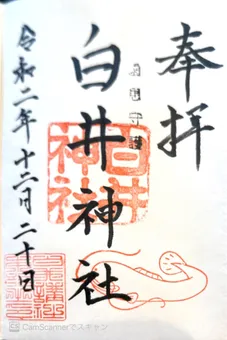 奉拝
白井神社
令和二年十二月二十日
白井
神社
CamScannerでスキャン